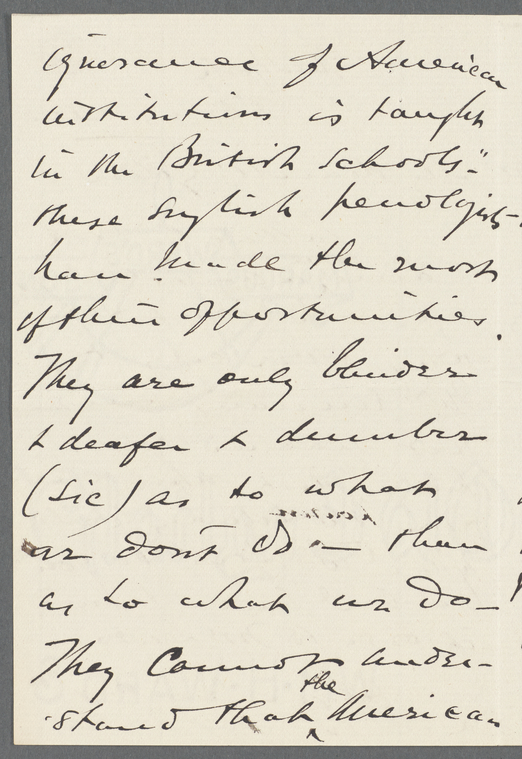 ignorance of American
institutions is taught
in the British Schools".
these English penologists
have made the most
of their opportunities.
They are only blinder
& deafer & dumber
(sic) as to what
we don't do — than
as to what we do —
They cannot under-
stand that the American